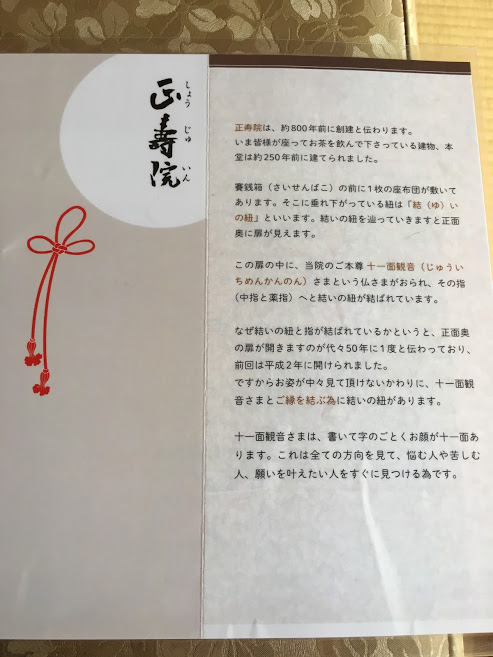 正壽院
しょう じゅ いん
正寿院は、約800年前に創建と伝わります。
いま皆様が座ってお茶を飲んで下さっている建物、本
堂は約250年前に建てられました。
賽銭箱（さいせんばこ）の前に1枚の座布団が敷いて
あります。そこに垂れ下がっている紐は「結（ゆ）い
の紐」といいます。結いの紐を辿っていきますと正面
奥に扉が見えます。
この扉の中に、当院のご本尊 十一面観音（じゅうい
ちめんかんのん）さまという仏さまがおられ、その指
（中指と薬指）へと結いの紐が結ばれています。
なぜ結いの紐と指が結ばれているかというと、正面奥
の扉が開きますのが代々50年に1度と伝わっており、
前回は平成2年に開けられました。
ですからお姿が中々見て頂けないかわりに、十一面観
音さまとご縁を結ぶ為に結いの紐があります。
十一面観音さまは、書いて字のごとくお顔が十一面あ
ります。これは全ての方向を見て、悩む人や苦しむ
人、願いを叶えたい人をすぐに見つける為です。